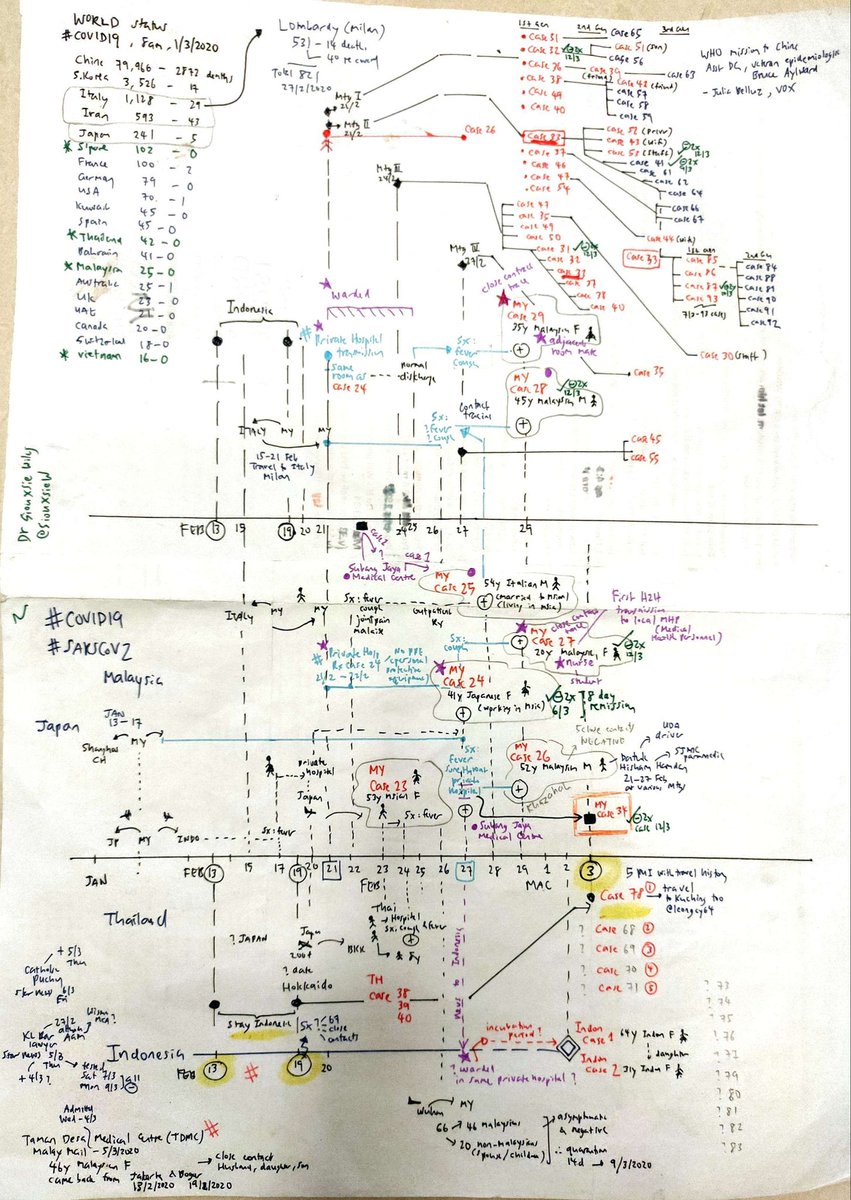 WORLD status
#COVID19, 8am, 1/3/2020
China 79,966 - 2873 deaths
S.Korea 3,526 - 17
Italy 1,128 - 29
Iran 593 - 43
Japan 241 - 5
S'pore 102 - 0
France 100 - 2
German 79 - 0
USA 70 - 1
Kuwait 45 - 0
Spain 45 - 0
Thailand 42 - 0
Bahrain 41 - 0
Malaysia 25 - 0
Australia 25 - 1
UK 23 - 0
UAE 21 - 0
Canada 20 - 0
Vietnam 16 - 0
Lombardy (milan)
531 - 14 death
40 recovered
Total 821
27/2/2020
WHO mission to China
Asst DG, veteran epidemiologist
Bruce Aylward
- Julia Belluz, VOX
1st Gen
2nd Gen
3rd Gen
case 51
case 32
case 36
case 38
case 49
case 40
case 65
case 51 (son)
12/3
case 56
case 39
case 63
case 42 (friend)
case 57
case 58
case 59
Mtg I
Mtg II
21/2
case 26
case 33
case 37
case 46
case 47
case 54
case 52 (Driver)
case 43 (wife)
case 53 (staff)
case 41
case 61
case 62
case 64
case 66
case 67
case 44 (wife)
Mtg III
24/2
case 47
case 35
case 49
case 50
case 31
12/3
case 32
case 33
case 37
case 38
case 40
Case 33
1st Gen
case 85
case 86
case 87
case 93
7/3 - 93 cases
2nd Gen
case 84
case 88
case 89
case 90
case 91
case 92
Mtg IV
27/2
close contact
Case 30 (staff)
case 35
case 45
case 55
Indonesia
Warded
Private Hospital
transmission
same
room as
case 24
normal
discharge
Sx:
fever
cough
MY
Case 29
35y Malaysian F
adjacent
room mate
MY
Case 28
12/3
45y Malaysian M
Contact
tracing
Sx:
? fever
? cough
ITALY MY MY
15-21 Feb
Travel to Italy
Milan
Dr Siouxsie Wiles
@SiouxsieW
FEB 13 15 19 20 21 24 25 26 27 29
case 2
?
case 1
Subang Jaya
Medical Centre
MY
Case 25
54y Italian M
(married to Msian)
(living in Msia)
Italy MY MY
Sx: fever
cough
joint pain
malaise
Outpatient
Rx
#COVID19
#SARSCOV2
Malaysia
Private Hosp
Rx Case 24
21/2 - 22/2
No PPE
(personal
protective
equipment)
Sx:
cough
MY
Case 27
close contact
20y Malaysian F
nurse
student
12/3
First H2H
transmission
to local MHP
(Medical
Health Personnel)
MY
Case 24
41y Japanese F
(working in Msia)
2x
6/3
8 day
remission
Japan
JAN
13-17
Shanghai
CH
MY
5 close contacts
NEGATIVE
UDA
driver
SJMC
paramedic
MY
Case 26
52y Malaysian M
Khazanah
Datuk
Hisham Hamdan
21-27 Feb
at various Mtg
Sx:
Fever
Sore throat
private
hospital
private
hospital
Japan
MY
Case 23
53y Msian F
Sx: fever
JP MY INDO
Sx: fever
Subang Jaya
Medical Centre
MY
Case 34
2x
12/3
JAN FEB 13 15 17 19 20 21 22 23 24 25 26 27 28 29 1 2 3
FEB MAC
5 PUI with travel history
Case 78 ①
travel
to Kuching too
@leongcy64
? Case 68 ②
? Case 69 ③
? Case 70 ④
? Case 71 ⑤
? 73
? 74
? 75
? 76
? 77
? 79
? 80
? 81
? 82
? 83
Thailand
? JAPAN
Japan
? date
Hokkaido
BKK
Thai
Hospital
Sx: cough & fever
8y
TH
case 38
39
40
stay Indonesia
Sx?
? 69
close
contacts
next to Indonesia
incubation
period?
Indon
Case 1
64y Indon F
daughter
Indon
Case 2
31y Indon F
Indonesia
FEB 13 # 19 20
? warded
in same private hospital ?
Wuhan MY
66 → 46 malaysians
20 non-malaysians
(spouse/children)
asymptomatic
& negative
∴ quarantine
14d → 9/3/2020
+ 5/3
Thu
Catholic
Star news 6/3
Fri
27/2
KL Bar
lawyer
Star news 5/3
Thu
+ 4/3?
tested
Sat 7/3
Mon 9/3
all
Admitted
Wed - 4/3
Taman Desa Medical Centre (TDMC) #
Malay Mail - 5/3/2020
46y Malaysian F
close contact
Husband, daughter, son
came back from Jakarta & Bogor
18/2/2020 19/2/2020